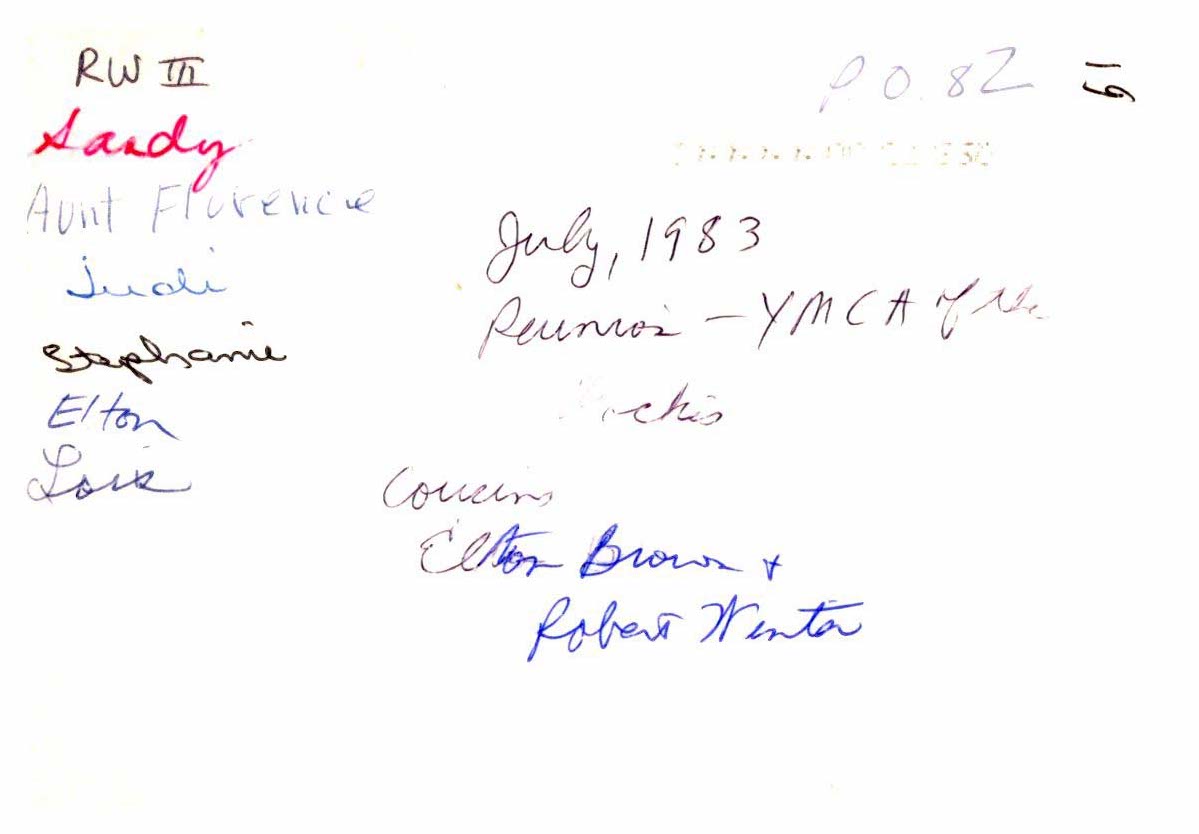 RW III
Sandy
Aunt Florence
Judi
Stephanie
Elton
Lois
P.O. 82
19
July, 1983
Reunion – YMCA of the
Rockies
Cousins
Elton Brown &
Robert Winter